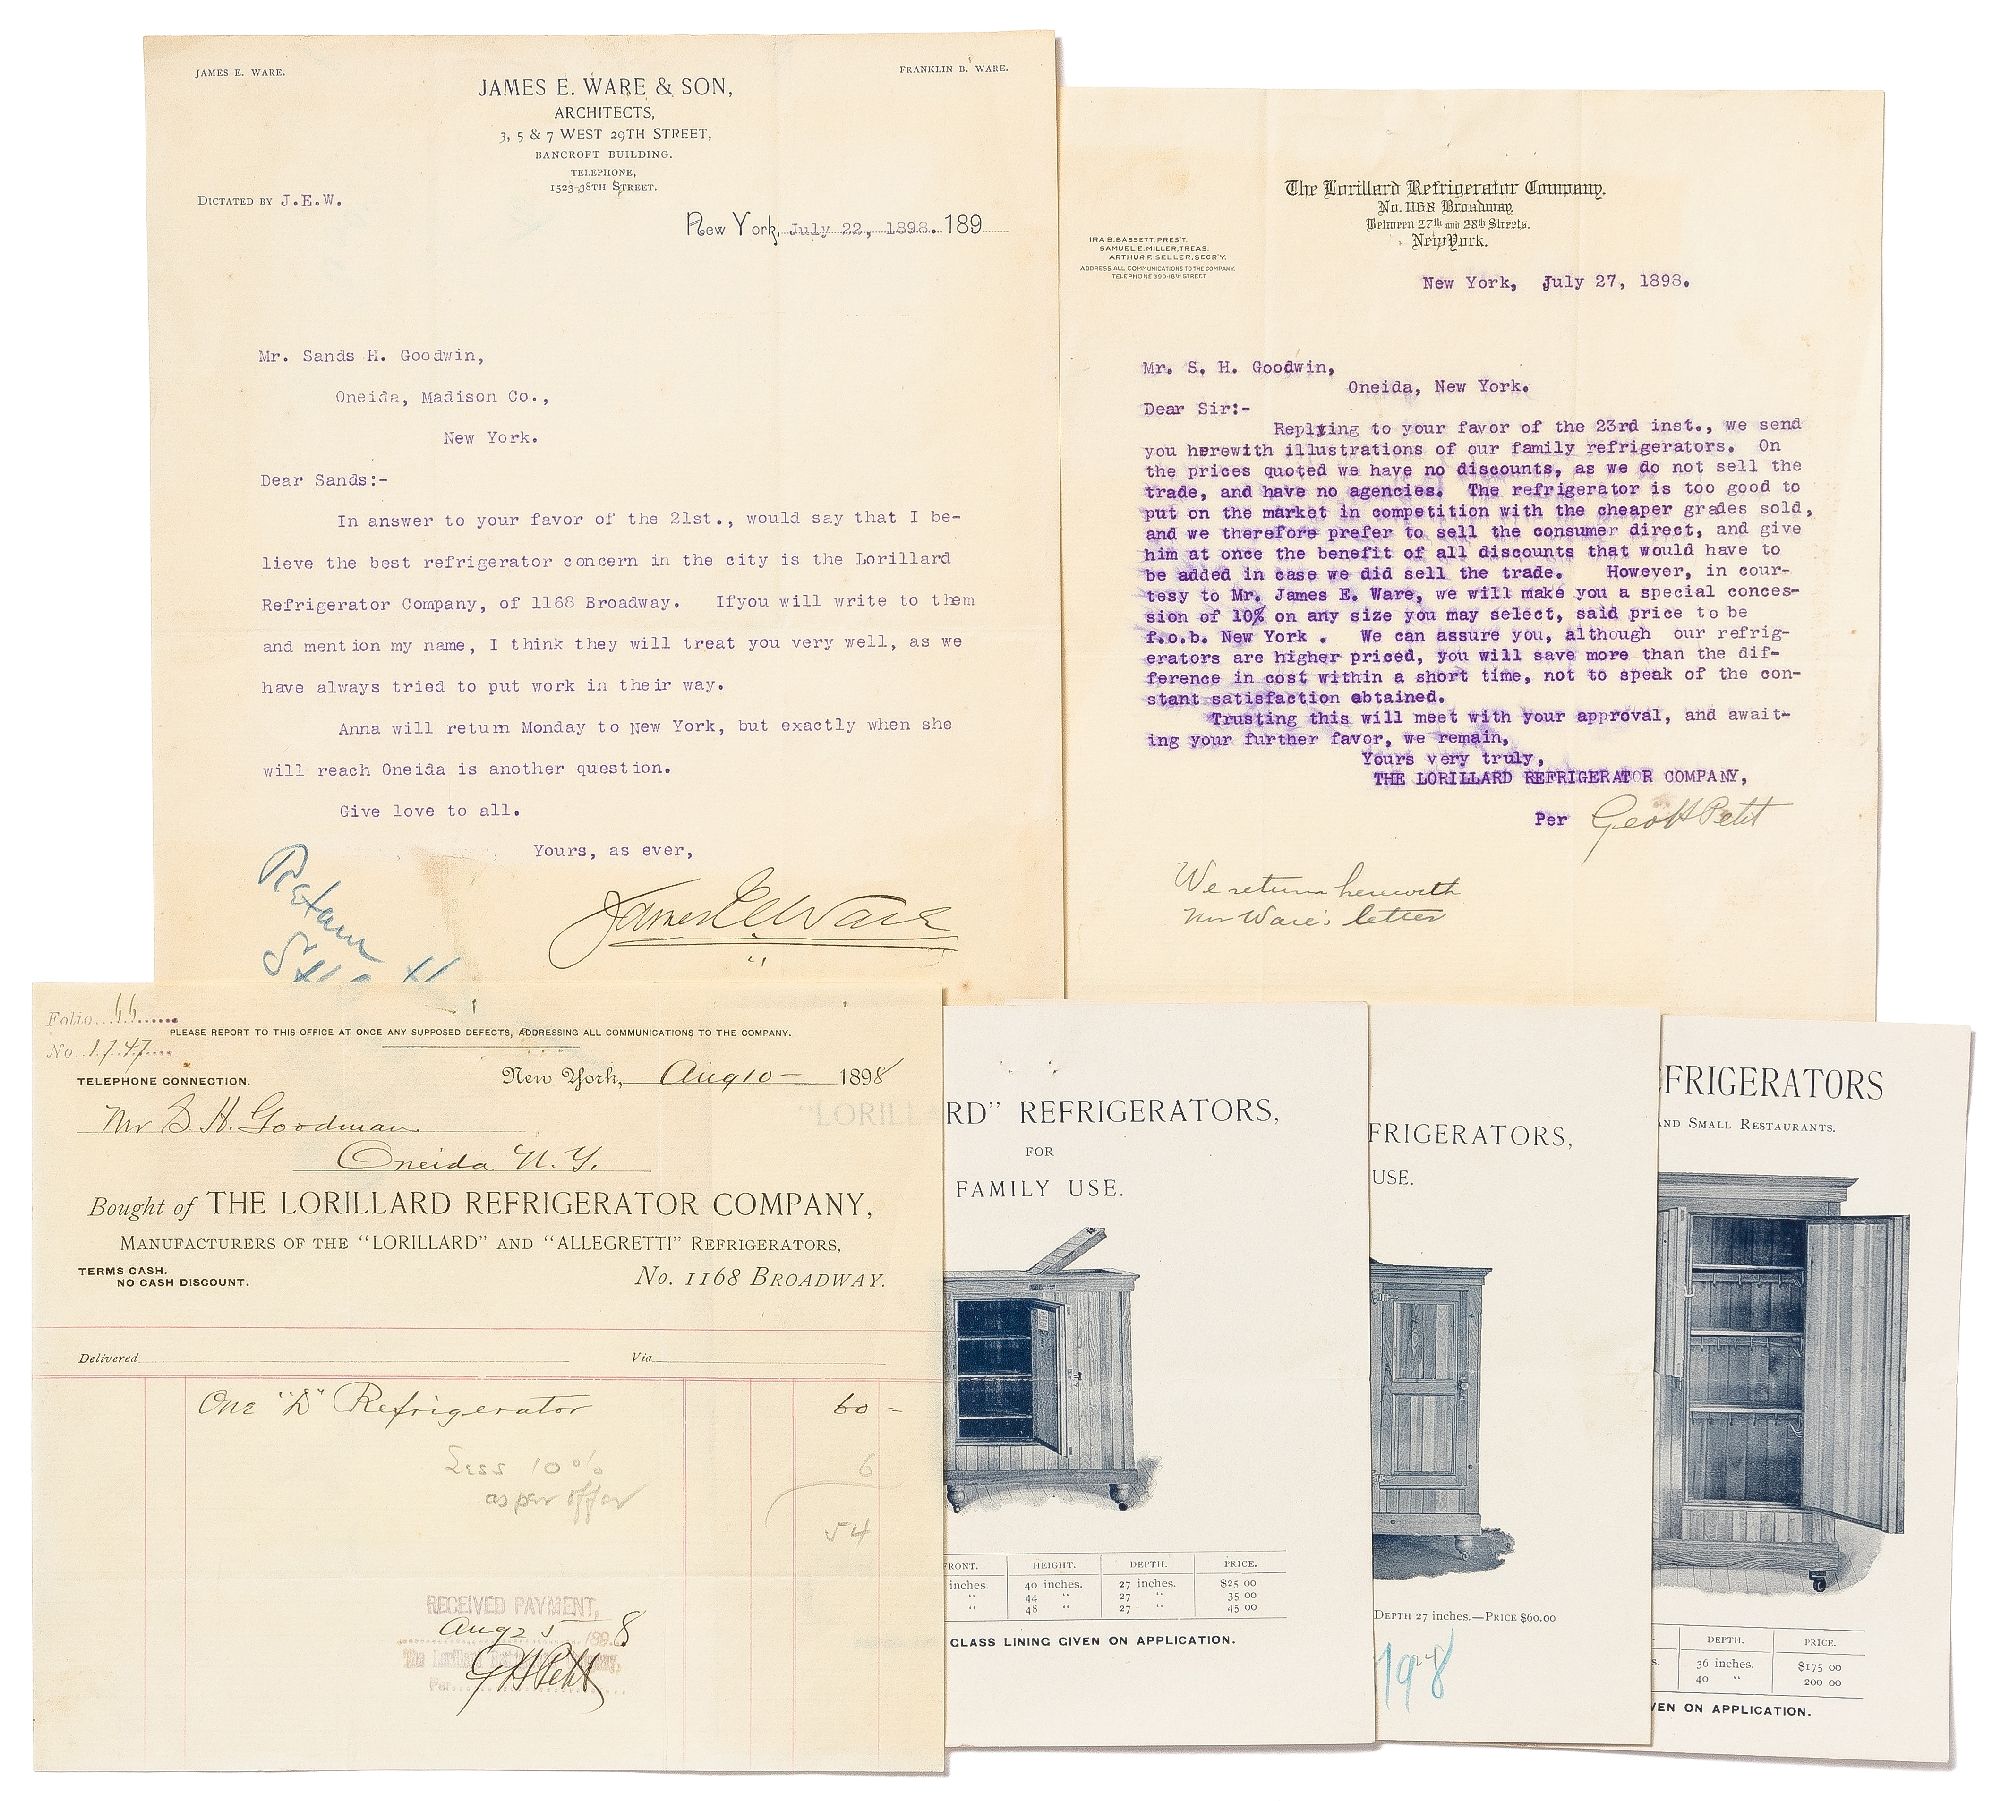 JAMES E. WARE.
FRANKLIN B. WARE.
JAMES E. WARE & SON,
ARCHITECTS,
3, 5 & 7 WEST 29TH STREET,
BANCROFT BUILDING.
TELEPHONE,
1523-38TH STREET.
DICTATED BY J.E.W.
New York, July 22, 1898. 189
Mr. Sands H. Goodwin,
Oneida, Madison Co.,
New York.
Dear Sands:-
In answer to your favor of the 21st., would say that I be-
lieve the best refrigerator concern in the city is the Lorillard
Refrigerator Company, of 1168 Broadway. Ifyou will write to them
and mention my name, I think they will treat you very well, as we
have always tried to put work in their way.
Anna will return Monday to New York, but exactly when she
will reach Oneida is another question.
Give love to all.
Yours, as ever,
James E. Ware
Retain
The Lorillard Refrigerator Company.
No. 1168 Broadway
Between 27th and 28th Streets.
New York.
IRA B. BASSETT, PRES'T.
SAMUEL E. MILLER, TREAS.
ARTHUR F. SELLER, SECR'Y.
ADDRESS ALL COMMUNICATIONS TO THE COMPANY.
TELEPHONE 390-18TH STREET
New York, July 27, 1898.
Mr. S. H. Goodwin,
Oneida, New York.
Dear Sir:-
Replying to your favor of the 23rd inst., we send
you herewith illustrations of our family refrigerators. On
the prices quoted we have no discounts, as we do not sell the
trade, and have no agencies. The refrigerator is too good to
put on the market in competition with the cheaper grades sold,
and we therefore prefer to sell the consumer direct, and give
him at once the benefit of all discounts that would have to
be added in case we did sell the trade. However, in cour-
tesy to Mr. James E. Ware, we will make you a special conces-
sion of 10% on any size you may select, said price to be
f.o.b. New York . We can assure you, although our refrig-
erators are higher priced, you will save more than the dif-
ference in cost within a short time, not to speak of the con-
stant satisfaction obtained.
Trusting this will meet with your approval, and await-
ing your further favor, we remain,
Yours very truly,
THE LORILLARD REFRIGERATOR COMPANY,
Per Geo H Petit
We return herewith
Mr Ware's letter
Folio 66
No. 1747
PLEASE REPORT TO THIS OFFICE AT ONCE ANY SUPPOSED DEFECTS, ADDRESSING ALL COMMUNICATIONS TO THE COMPANY.
TELEPHONE CONNECTION.
New York, Aug 10 - 1898
Mr S. H. Goodman
Oneida N. Y.
Bought of THE LORILLARD REFRIGERATOR COMPANY,
MANUFACTURERS OF THE "LORILLARD" AND "ALLEGRETTI" REFRIGERATORS,
TERMS CASH.
NO CASH DISCOUNT.
No. 1168 BROADWAY.
Delivered
Via
One "D" Refrigerator 60 -
Less 10% 6
as per offer
54
RECEIVED PAYMENT,
Aug 25 1898
The Lorillard
Per
G H Petit
"LORILLARD" REFRIGERATORS,
FOR
FAMILY USE.
FRONT. HEIGHT. DEPTH. PRICE.
inches 40 inches. 27 inches. $25 00
" 44 " 27 " 35 00
" 48 " 27 " 45 00
CLASS LINING GIVEN ON APPLICATION.
FRIGERATORS,
USE.
DEPTH 27 inches.—PRICE $60.00
FRIGERATORS
AND SMALL RESTAURANTS.
DEPTH. PRICE.
s. 36 inches. $175 00
40 " 200 00
VEN ON APPLICATION.